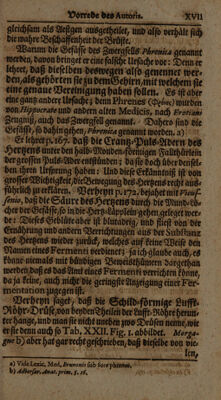 Vorrede des Autoris. XVII
gleichsam als Aestgen ausgetheilet, und also verhält sich
die wahre Beschaffenheit der Brüste.
Warum die Gefässe des Zwerfells Phrenica genannt
werden, davon bringet er eine falsche Ursache vor: Denn er
lehret, daß dieselben deswegen also genennet wer-
den, als gehörten sie zu dem Gehirn, mit welchem sie
eine genaue Vereinigung haben sollen. Es ist aber
eine gantz andere Ursache; denn Phrenes (φρένες) wurden
von Hippocrate und andern alten Medicis, nach Erotiani
Zeugniß, auch das Zwergfell genannt. Daher sind die
Gefässe, so dahin gehen, Phrenica genannt worden. a)
Er lehret p. 167. daß die Crantz-Puls-Adern des
Hertzens unter den halb-Monden-förmigen Fallthürlein
der grossen Puls-Ader entstünden; da sie doch über denensel-
ben ihren Ursprung haben: Und diese Erkäntniß ist von
grosser Wichtigkeit, die Bewegung des Hertzens recht aus-
führlich zu erklären. Verheyn p. 172. bejahet mit
senio, daß die Säure des Hertzens durch die Wund-lö-
cher oder Gefässe, so in die Hertz-Aepgelein gehen, geleget wer-
de: Dieses Geblüte aber ist blutadrig, und fliest von der
Ernährung und andern Verrichtungen aus der Substantz
des Hertzens wieder zurück, welches auf keine Weise den
Namen eines Fermenti verdienet; ja ich glaube auch, es
können niemals mit bündigen Beweisthümern dargethan
werden, daß es das Amt eines Fermenti verrichten könne,
ja keine, auch nicht die geringste Anzeigung einer Fer-
mentation gezeiget.
Verheyn saget, daß die Schild-förmige Lufft-
Röhr-Drüse, von beyden Theilen der Lufft-Röhre herun-
ter hange, und man sie nicht unbillig zwo Drüsen nenne, wie
er sie denn auch so Tab. XXII. Fig. 1. abbildet. Morga-
gne b) aber hat gar recht geschrieben, daß dieselbe von vie-
len,
a) Vide Lexic. Med. Brunonis sub hoce phrenes.
b) Adversar. Anat. prim. §. 26.